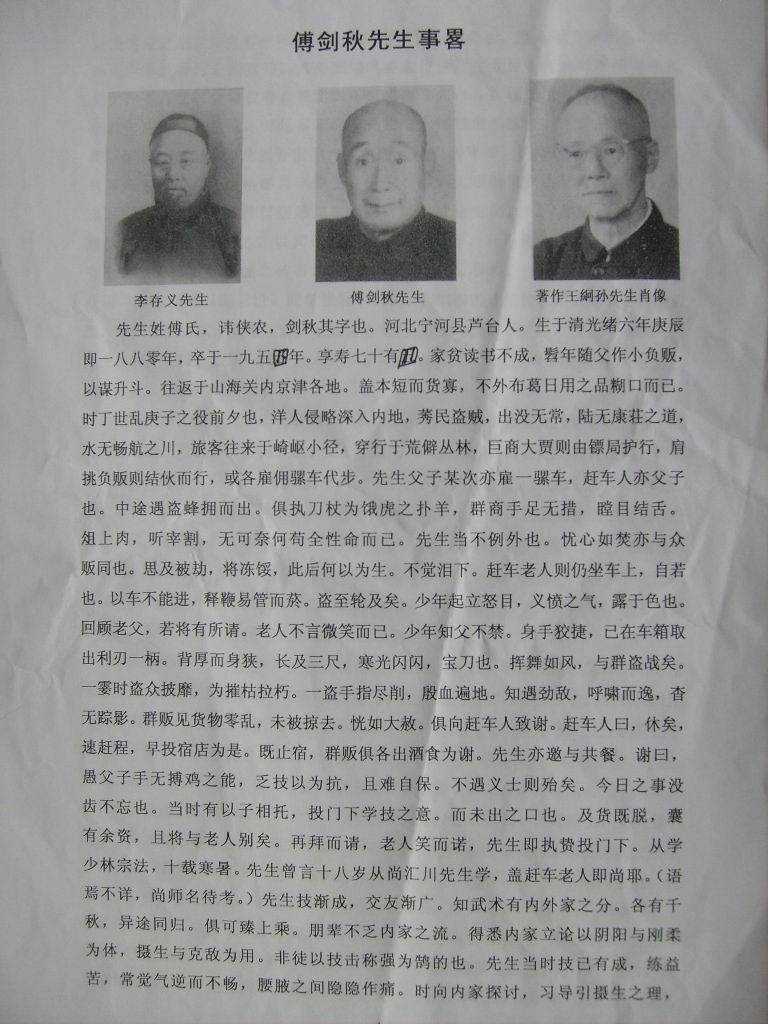 傅剑秋先生事畧
李存义先生
傅剑秋先生
著作王綗孙先生肖像
先生姓傅氏，讳侠农，剑秋其字也。河北宁河县芦台人。生于清光绪六年庚辰
即一八八零年，卒于一九五年。享寿七十有。家贫读书不成，髫年随父作小负贩，
以谋升斗。往返于山海关内京津各地。盖本短而货寡，不外布葛日用之品糊口而已。
时丁世乱庚子之役前夕也，洋人侵略深入内地，莠民盗贼，出没无常，陆无康荘之道，
水无畅航之川，旅客往来于崎岖小径，穿行于荒僻丛林，巨商大贾则由镖局护行，肩
挑负贩则结伙而行，或各雇佣骡车代步。先生父子某次亦雇一骡车，赶车人亦父子
也。中途遇盗蜂拥而出。俱执刀杖为饿虎之扑羊，群商手足无措，瞠目结舌。
俎上肉，听宰割，无可奈何苟全性命而已。先生当不例外也。忧心如焚亦与众
贩同也。思及被劫，将冻馁，此后何以为生。不觉泪下。赶车老人则仍坐车上，自若
也。以车不能进，释鞭易管而菸。盗至轮及矣。少年起立怒目，义愤之气，露于色也。
回顾老父，若将有所请。老人不言微笑而已。少年知父不禁。身手狡捷，已在车箱取
出利刃一柄。背厚而身狭，长及三尺，寒光闪闪，宝刀也。挥舞如风，与群盗战矣。
一霎时盗众披靡，为摧枯拉朽。一盗手指尽削，殷血遍地。知遇劲敌，呼啸而逸，杳
无踪影。群贩见货物零乱，未被掠去。恍如大赦。俱向赶车人致谢。赶车人曰，休矣，
速赶程，早投宿店为是。既止宿，群贩俱各出酒食为谢。先生亦邀与共餐。谢曰，
愚父子手无搏鸡之能，乏技以为抗，且难自保。不遇义士则殆矣。今日之事没
齿不忘也。当时有以子相托，投门下学技之意。而未出之口也。及货既脱，囊
有余资，且将与老人别矣。再拜而请，老人笑而诺，先生即执贽投门下。从学
少林宗法，十载寒暑。先生曾言十八岁从尚汇川先生学，盖赶车老人即尚耶。（语
焉不详，尚师名待考。）先生技渐成，交友渐广。知武术有内外家之分。各有千
秋，异途同归。俱可臻上乘。朋辈不乏内家之流。得悉内家立论以阴阳与刚柔
为体，摄生与克敌为用。非徒以技击称强为鹄的也。先生当时技已有成，练益
苦，常觉气逆而不畅，腰腋之间隐隐作痛。时向内家探讨，习导引摄生之理，